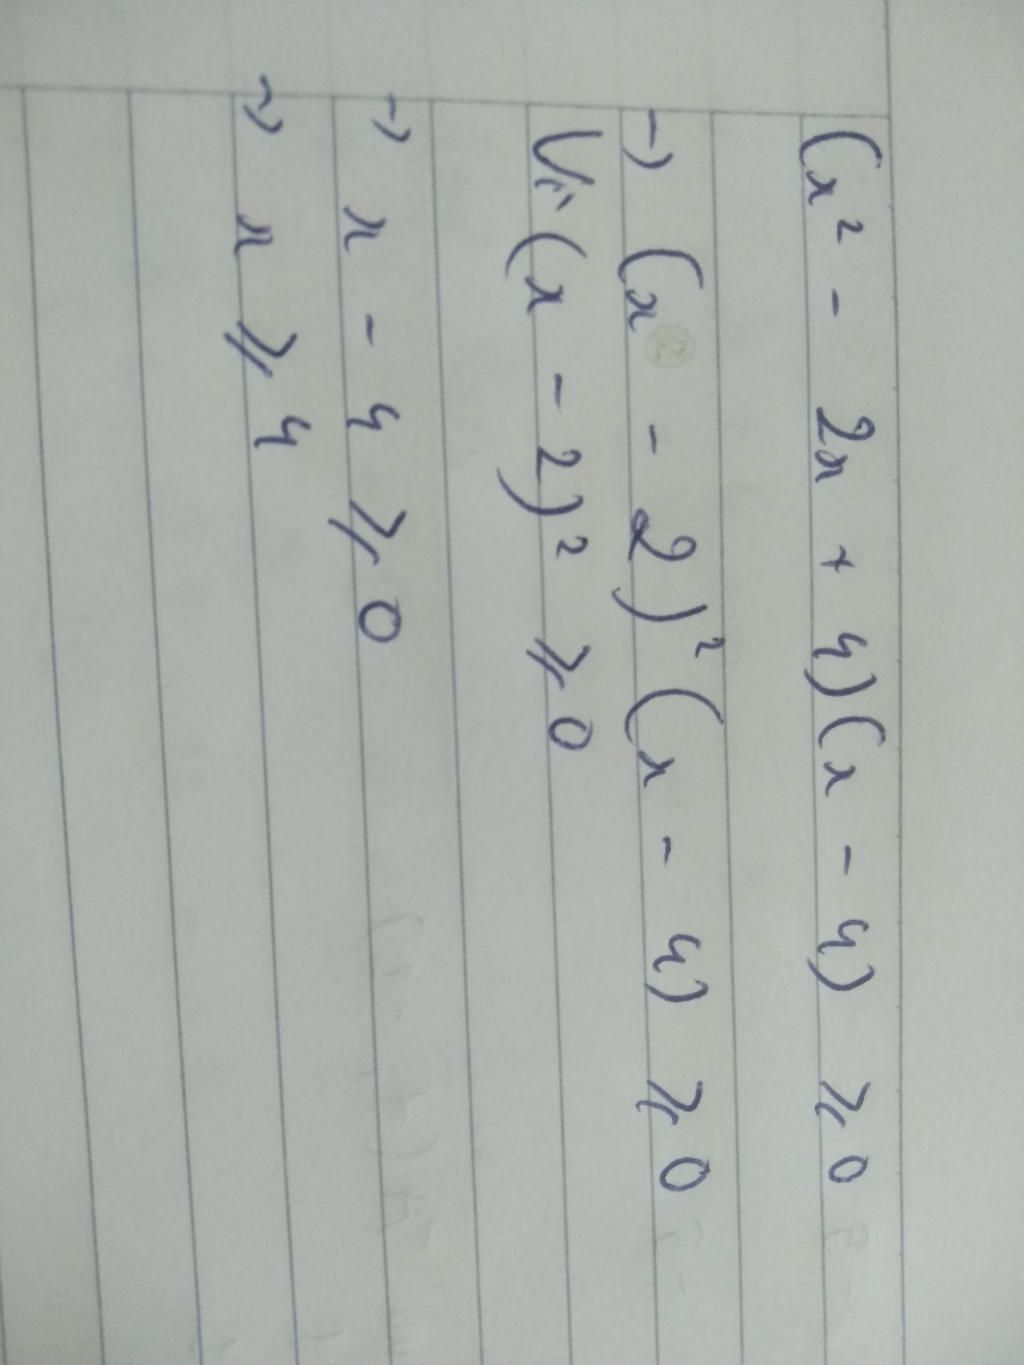 (x² - 2x + 4)(x - 4) ⩾ 0
→ (x - 2)² (x - 4) ⩾ 0
Vì (x - 2)² ⩾ 0
→ x - 4 ⩾ 0
→ x ⩾ 4